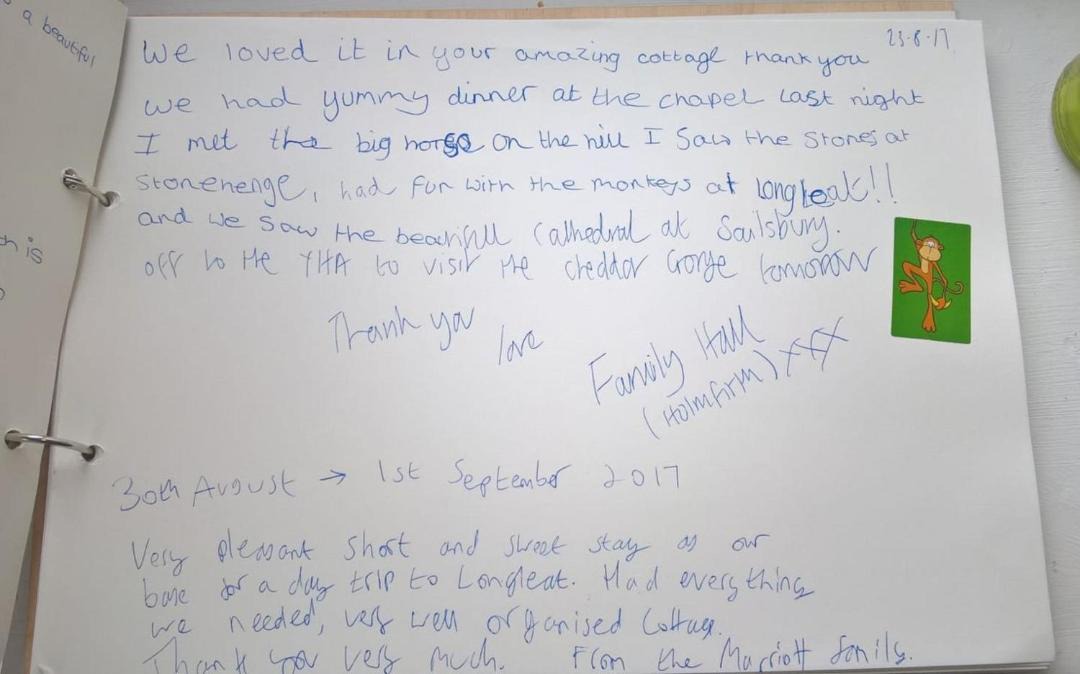 a beautiful
h is
23-8-17
We loved it in your amazing cottage thank you
we had yummy dinner at the chapel last night
I met the big horse on the hill I saw the stones at
stonehenge, had fun with the monkeys at Longleak!!
and we saw the beautifull Cathedral at Sailsbury.
off to the YHA to visit the cheddar Gorge tomorrow
Thank you
love
Family Hall
(Holmfirth) xxx
30th August → 1st September 2017
Very pleasant short and sweet stay as our
base for a day trip to Longleat. Had everything
we needed, very well organised Cottage.
Thank you very much. From the Marriott family.